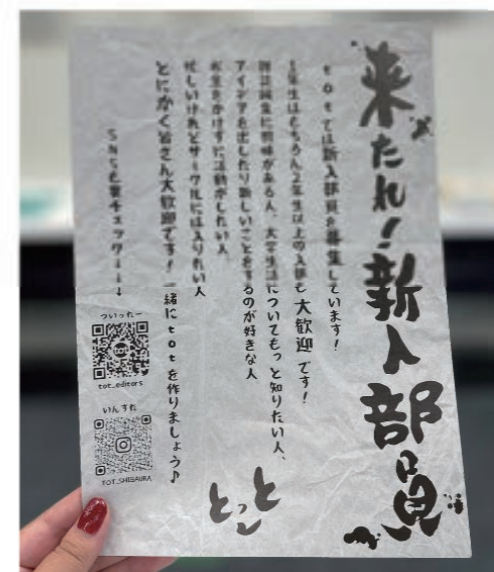 来たれ!新入部員
totでは新入部員を募集しています!
1年生はもちろん2年生以上の入部も大歓迎です!
雑誌編集に興味がある人、大学生活についてもっと知りたい人、
アイデアを出したり新しいことをするのが好きな人
お金をかけずに活動がしたい人
忙しいけれどサークルには入りたい人
とにかく皆さん大歓迎です!一緒にtotを作りましょう♪
SNSも要チェック↓↓↓
ついったー
tot_editors
いんすた
TOT_SHIBAURA
とっと